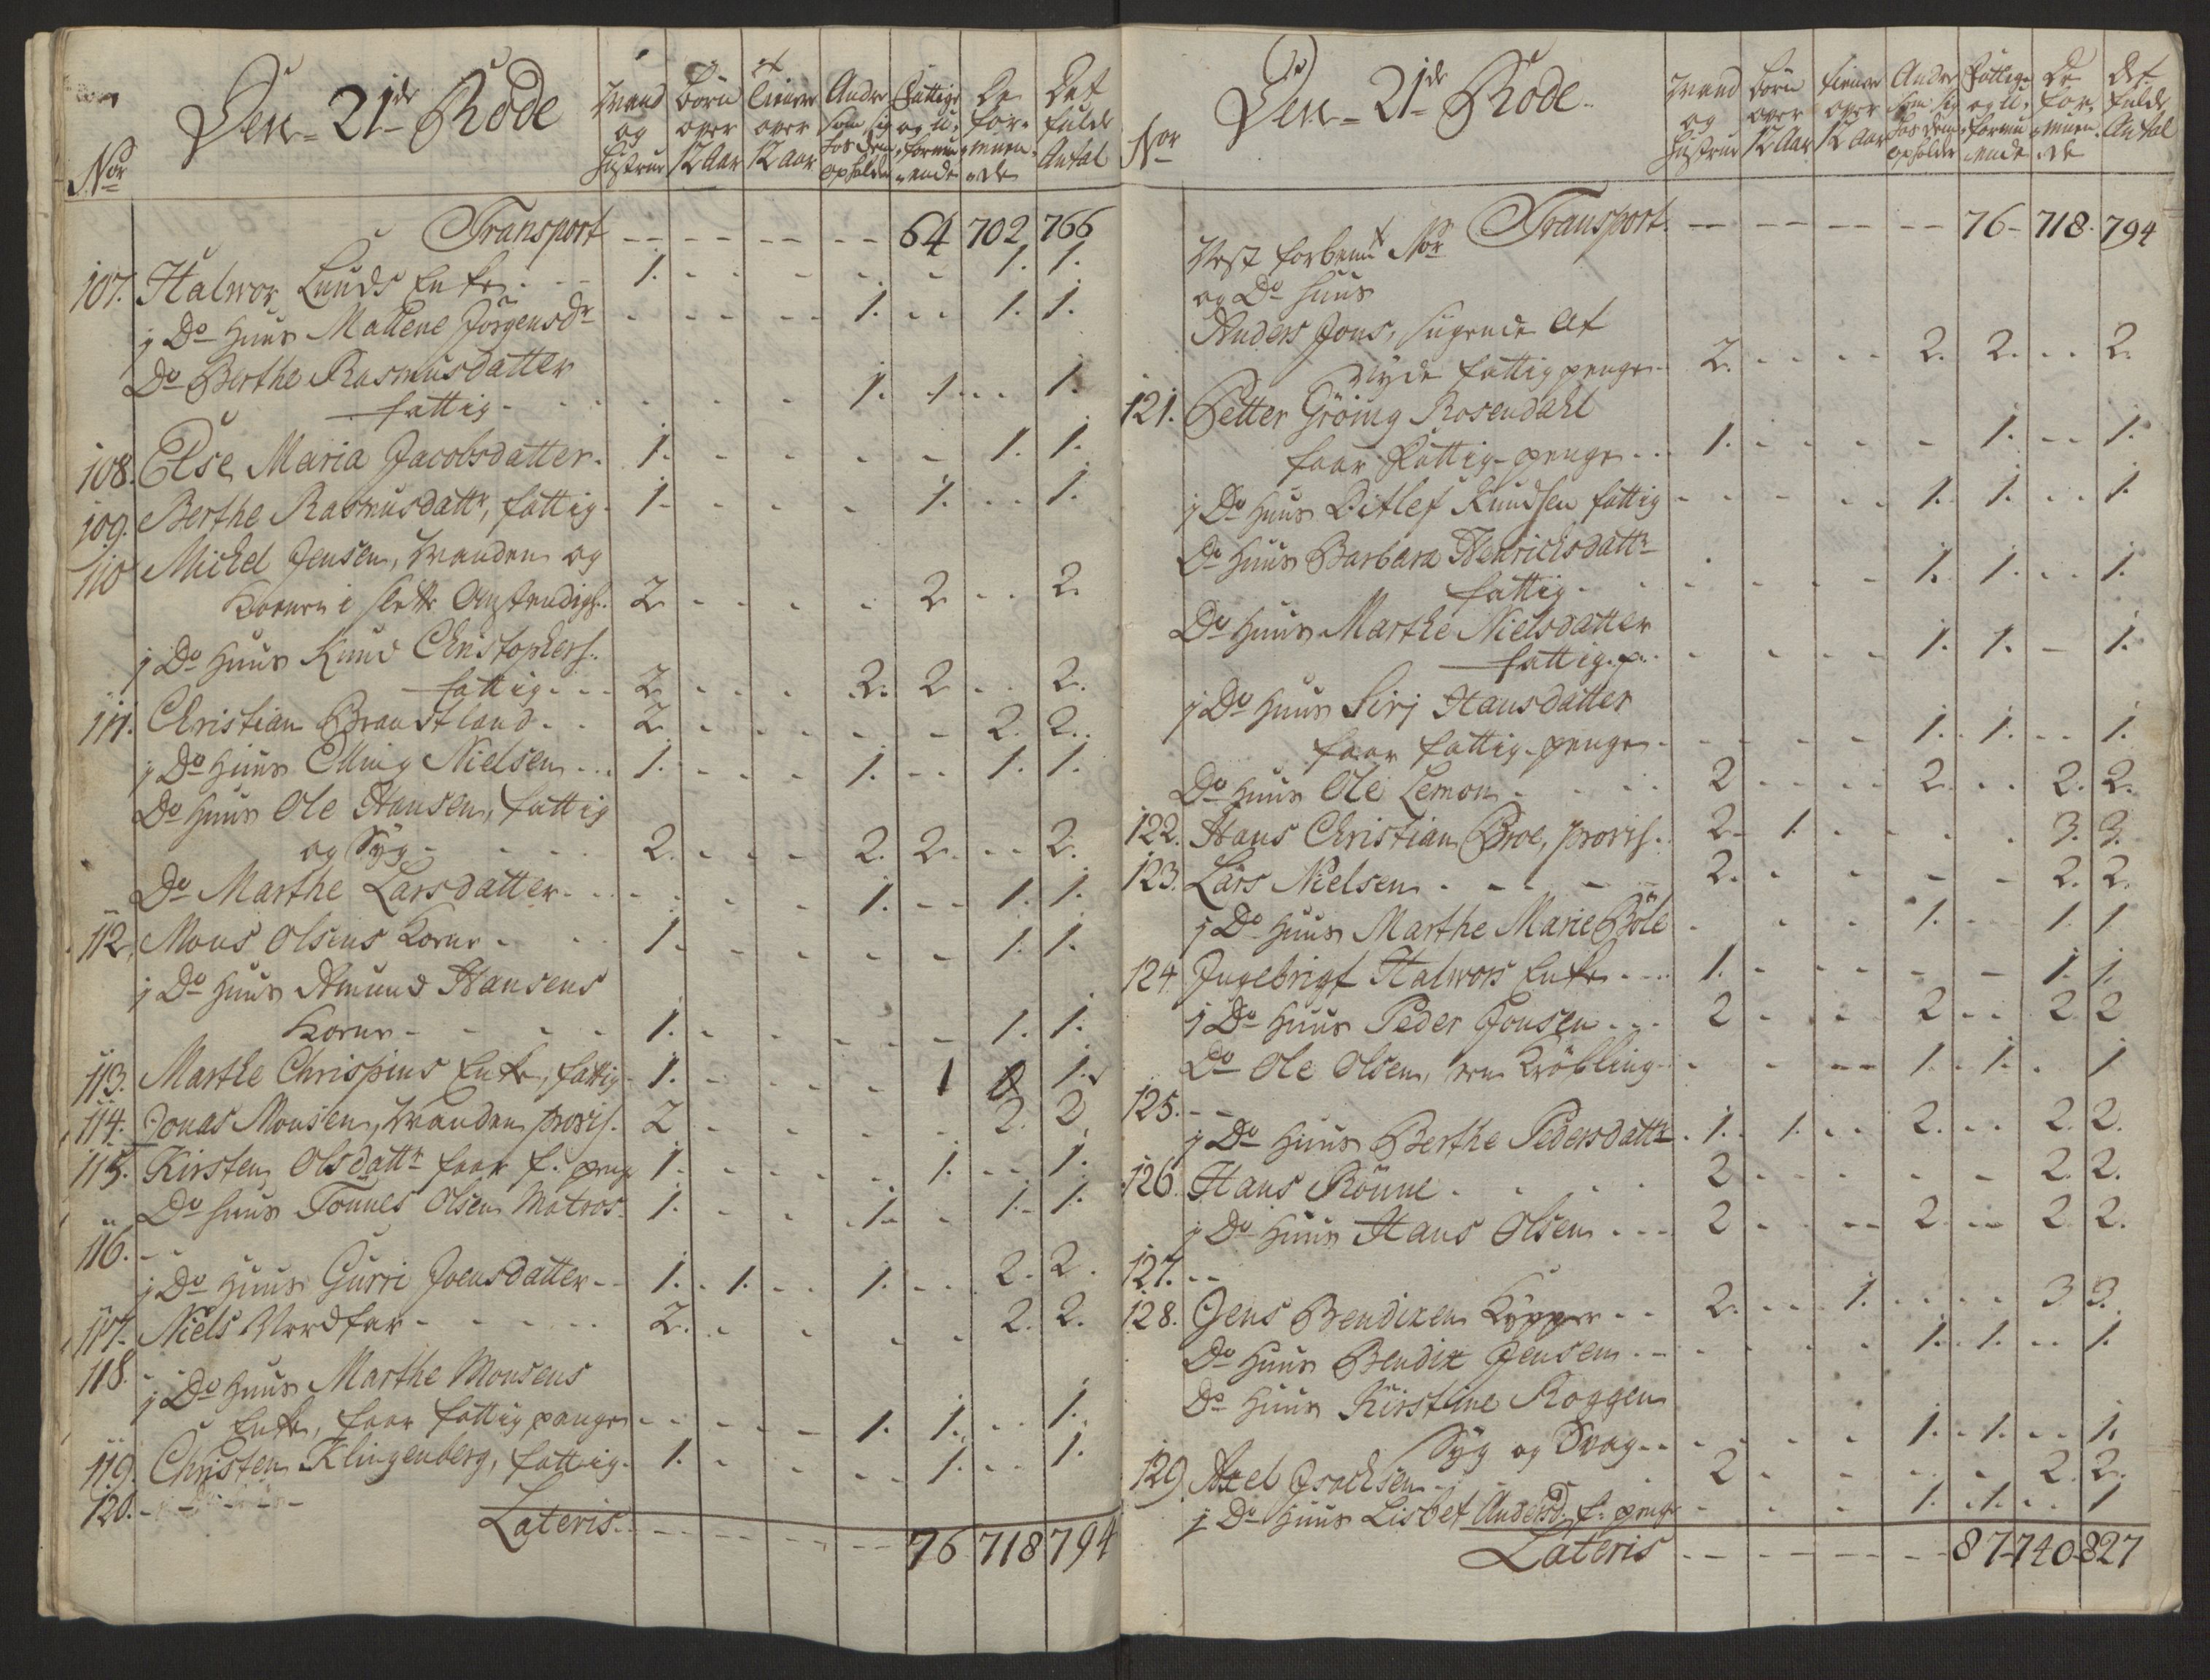 Den 21de Rode
No
Mand og Hustrue
Børn over 12 Aar
Tiener over 12 aar
Andre som sig hos dem opholder
Fattige og u-formu-ende
De for-muen-de
Det fulde Antal
Transport - - - - 64 702 766
107. Halwor Lunds Enke 1. 1. 1.
j Do Huus Mallene Jørgensdr 1. 1. 1.
Do Berthe Rasmusdatter
fattig 1. 1. 1.
108. Else Maria Jacobsdatter 1. 1. 1.
109. Berthe Rasmusdattr, fattig 1. 1. 1.
110 Michel Jensen, Manden og
Konen i slette Omstendigh. 2 2 2
j Do Huus Knud Christophers.
fattig 2 2. 2 2.
111. Christian Brandtland 2 2. 2.
j Do Huus Elling Nielsen 1. 1. 1. 1.
Do Huus Ole Hansen, fattig
og Syg 2. 2. 2. 2.
Do Marthe Larsdatter 1. 1. 1.
112. Mons Olsens Kone 1. 1. 1.
j Do Huus Amund Hansens
Kone 1. 1. 1.
113. Marthe Chrispins Enke, fattig 1. 1 0 1.
114. Jonas Monsen, Manden provis. 2 2. 2.
115. Kirsten Olsdattr faar f. peng 1. 1. 1.
Do huus Tønnes Olsen Matros 1. 1. 1. 1.
116. - -
j Do Huus Gurri Joensdatter 1. 1. 1. 2. 2.
117. Niels Nordfar 2. 2. 2.
118. -
j Do Huus Marthe Monsens
Enke, faar fattig penge 1. 1. 1.
119. Christen Klingenberg, fattig 1. 1. 1.
120. - -
Lateris 76 718 794
Den 21de Rode
No
Mand og Hustrue
Børn over 12 Aar
Tiener over 12 Aar
Andre som sig hos dem opholder
Fattige og u-formu-ende
De for-muen-de
Det fulde Antal
Transport - - - - 76 718. 794
Vest forbemt No
og Do huus
Anders Jons, sugende at
Nyde fattigpenge 2. 2. 2. 2.
121. Petter Grøing Rosendahl
faar Fattig-penge 1. 1. 1.
j Do Huus Ditlef Knudsen fattig 1. 1. 1.
Do Huus Barbara Henrichsdattr
fattig 1. 1. 1.
Do Huus Marthe Nielsdatter
fattig. p. 1. 1. 1.
j Do Huus Sirj Hansdatter
faar fattig-penge 1. 1. 1.
Do Huus Ole Lemon 2 2. 2. 2.
122. Hans Christian Broe, provis. 2. 1. 3. 3.
123. Lars Nielsen 2. 2. 2.
j Do Huus Marthe Marie Bøle 1. 1. 1
124. Ingebrigt Halwors Enke 1. 1. 1.
j Do Huus Peder Jonsen 2 2 2 2
Do Ole Olsen, en Krøbling 1. 1. 1
125. - -
j Do Huus Berthe Pedersdattr 1. 1. 2. 2. 2.
126. Hans Rönne 2 2. 2.
j Do Huus Hans Olsen 2 2. 2. 2.
127. - -
128. Jens Bendixen Kypper 2. 1. 3. 3.
Do Huus Bendix Jensen 1. 1. 1.
Do Huus Kirstine Roggen
Syg og Svag 1. 1. 1.
129. Axel Isachsen 2 2. 2.
j Do Huus Lisbet Andersd. f. peng 1. 1. 1
Lateris 87 740 827